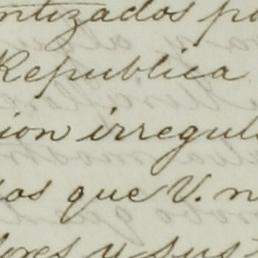 ntizados po
Republica
ion irregul
os que V. n
ores y sus